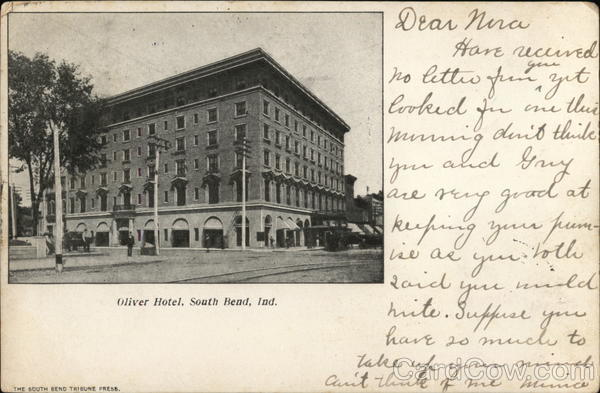 Dear Nora
Have received
you
no letter from yet
looked for one this
morning don't think
you and Guy
are very good at
keeping your prom-
ise as you both
said you would
write. Suppose you
have so much to
take up your mind
Can't think of me Minnie
Oliver Hotel, South Bend, Ind.
THE SOUTH BEND TRIBUNE PRESS.
CardCow.com